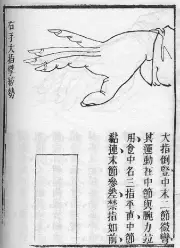 右手大指擘新勢
大指倒豎中末二節微彎
其運動在中節與腕力並
用食中名三指平直中節
黏連末節參差禁指如前